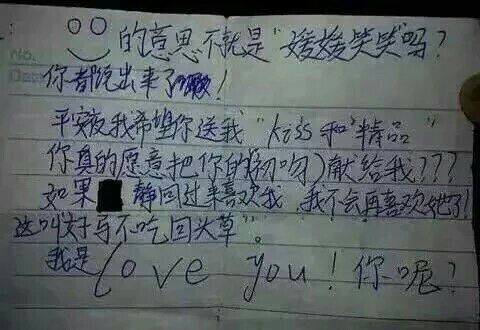 的意思不就是“媛媛笑笑”吗?
No.
Date
你都说出来了啦!
平安夜我希望你送我“kiss和“精品”
你真的愿意把你的(初吻)献给我???
如果 静回过来喜欢我,我不会再喜欢她了!
这叫好马不吃回头草”。
我是Love you!你呢?